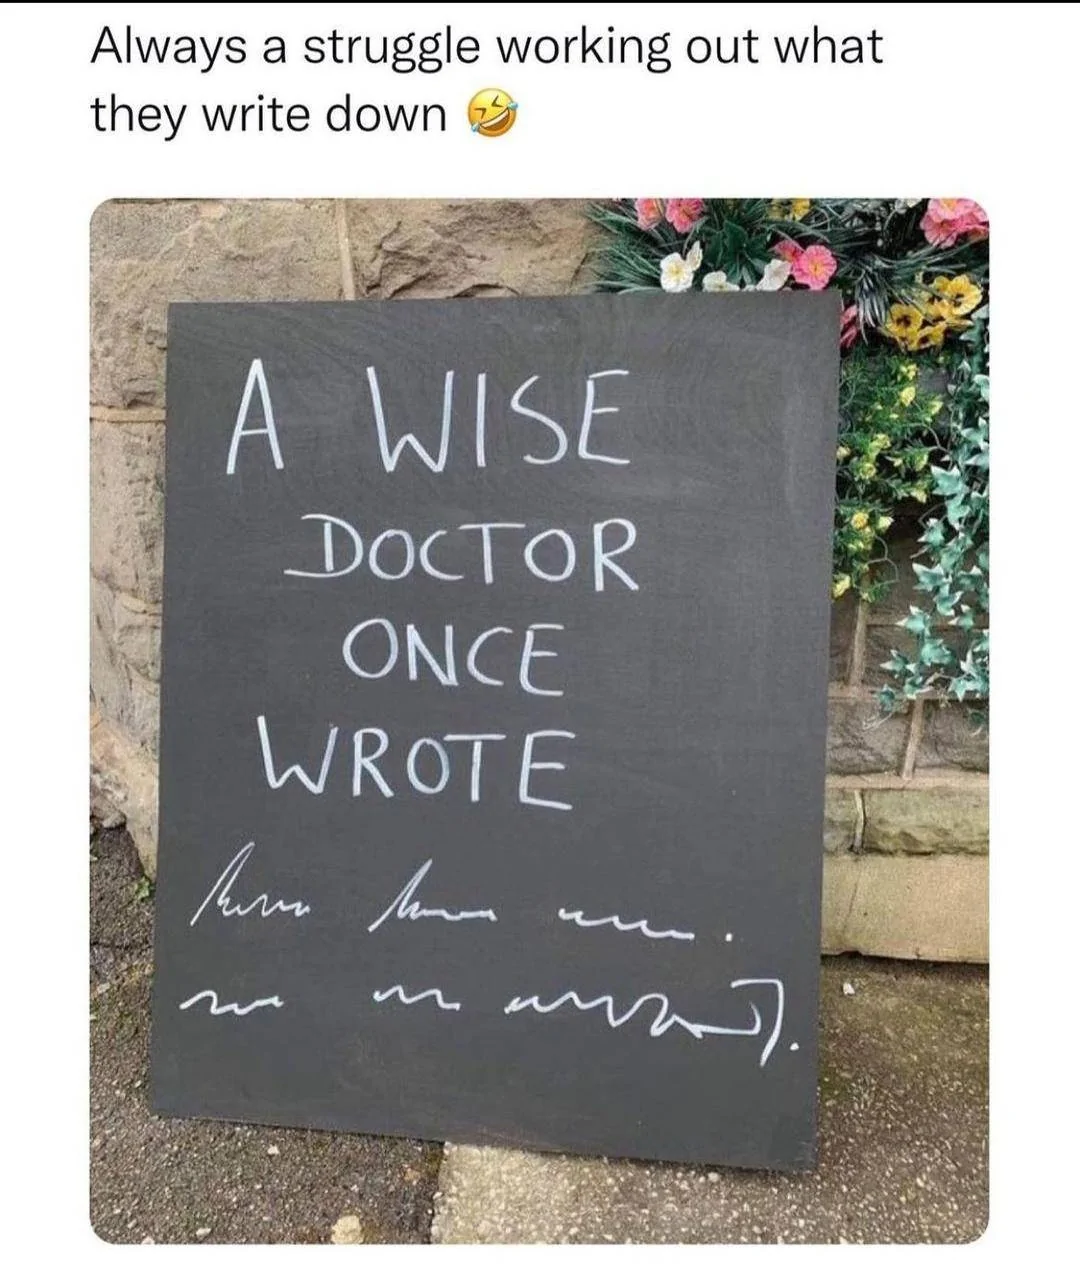 Always a struggle working out what
they write down 🤣
A WISE
DOCTOR
ONCE
WROTE